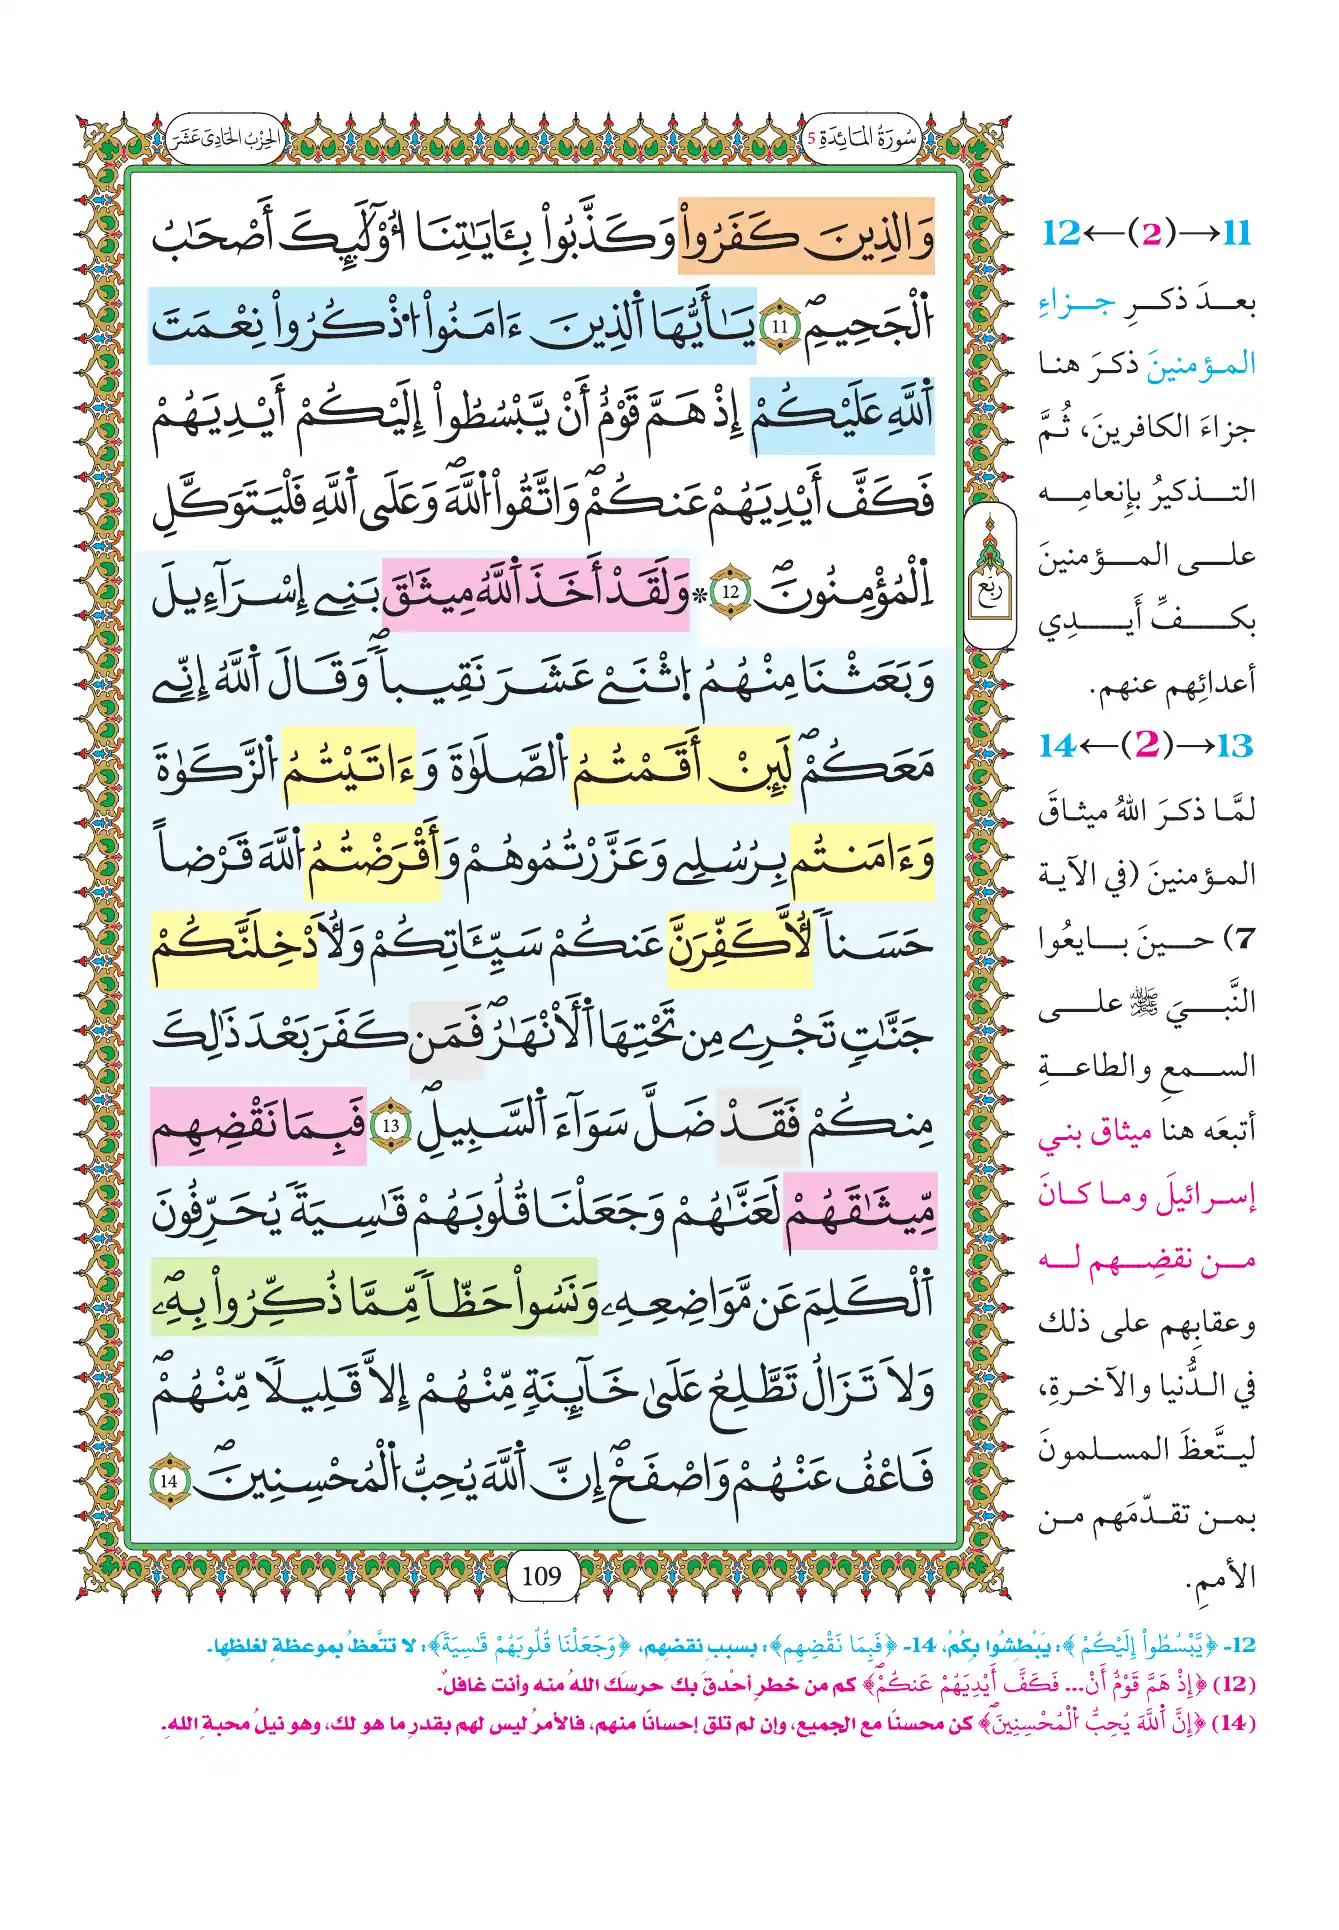 سُورَةُ المَائِدَةِ 5
الحِزْبُ الحَادِي عَشَرَ
وَالذِينَ كَفَرُواْ وَكَذَّبُواْ بِـَٔايَٰتِنَا أُوْلَٰٓئِكَ أَصْحَٰبُ
اُ۬لْجَحِيمِۖ 11 يَٰٓأَيُّهَا اَ۬لذِينَ ءَامَنُواْ اُ۟ذْكُرُواْ نِعْمَتَ
اَ۬للَّهِ عَلَيْكُمْ إِذْ هَمَّ قَوْمٌ أَنْ يَّبْسُطُواْ إِلَيْكُمْ أَيْدِيَهُمْ
فَكَفَّ أَيْدِيَهُمْ عَنكُمْۖ وَاتَّقُواْ اُ۬للَّهَۖ وَعَلَى اَ۬للَّهِ فَلْيَتَوَكَّلِ
اِ۬لْمُؤْمِنُونَۖ 12 * وَلَقَدْ أَخَذَ اَ۬للَّهُ مِيثَٰقَ بَنِے إِسْرَآءِيلَ
وَبَعَثْنَا مِنْهُمُ اُ۪ثْنَےْ عَشَرَ نَقِيباٗۖ وَقَالَ اَ۬للَّهُ إِنِّے
مَعَكُمْۖ لَئِنْ أَقَمْتُمُ اُ۬لصَّلَوٰةَ وَءَاتَيْتُمُ اُ۬لزَّكَوٰةَ
وَءَامَنتُم بِرُسُلِے وَعَزَّرْتُمُوهُمْ وَأَقْرَضْتُمُ اُ۬للَّهَ قَرْضاً
حَسَناٗ لَّأُكَفِّرَنَّ عَنكُمْ سَيِّـَٔاتِكُمْ وَلَأُدْخِلَنَّكُمْ
جَنَّٰتٖ تَجْرِے مِن تَحْتِهَا اَ۬لْأَنْهَٰرُۖ فَمَن كَفَرَ بَعْدَ ذَٰلِكَ
مِنكُمْ فَقَدْ ضَلَّ سَوَآءَ اَ۬لسَّبِيلِۖ 13 فَبِمَا نَقْضِهِم
مِّيثَٰقَهُمْ لَعَنَّٰهُمْ وَجَعَلْنَا قُلُوبَهُمْ قَٰسِيَةٗ يُحَرِّفُونَ
اَ۬لْكَلِمَ عَن مَّوَاضِعِهِۦ وَنَسُواْ حَظّاٗ مِّمَّا ذُكِّرُواْ بِهِۦۖ
وَلَا تَزَالُ تَطَّلِعُ عَلَىٰ خَآئِنَةٖ مِّنْهُمْ إِلَّا قَلِيلاٗ مِّنْهُمْۖ
فَاعْفُ عَنْهُمْ وَاصْفَحْۖ إِنَّ اَ۬للَّهَ يُحِبُّ اُ۬لْمُحْسِنِينَۖ 14
رُبُع
109
11→(2)←12
بعدَ ذكرِ جزاءِ
المؤمنينَ ذكرَ هنا
جزاءَ الكافرينَ، ثُمَّ
التذكيرُ بإنعامِه
على المؤمنينَ
بكفِّ أَيدِي
أعدائِهم عنهم.
13→(2)←14
لمَّا ذكرَ اللهُ ميثاقَ
المؤمنينَ (في الآية
7) حينَ بايعُوا
النَّبيَ ﷺ على
السمعِ والطاعةِ
أتبعَه هنا ميثاق بني
إسرائيلَ وما كانَ
من نقضِهم له
وعقابِهم على ذلك
في الدُّنيا والآخرةِ،
ليتَّعظَ المسلمونَ
بمن تقدّمَهم من
الأممِ.
12- ﴿يَّبْسُطُواْ إِلَيْكُمْ﴾: يَبْطِشُوا بِكُمْ، 14- ﴿فَبِمَا نَقْضِهِم﴾: بسببِ نقضِهم، ﴿وَجَعَلْنَا قُلُوبَهُمْ قَٰسِيَةٗ﴾: لا تتَّعظُ بموعظةٍ لغلظِها.
(12) ﴿إِذْ هَمَّ قَوْمٌ أَنْ... فَكَفَّ أَيْدِيَهُمْ عَنكُمْۖ﴾ كم من خطرٍ أحْدقَ بك حرسَك اللهُ منه وأنت غافلٌ.
(14) ﴿إِنَّ اَ۬للَّهَ يُحِبُّ اُ۬لْمُحْسِنِينَۖ﴾ كن محسنًا مع الجميع، وإن لم تلق إحسانًا منهم، فالأمرُ ليس لهم بقدرِ ما هو لك، وهو نيلُ محبةِ اللهِ.